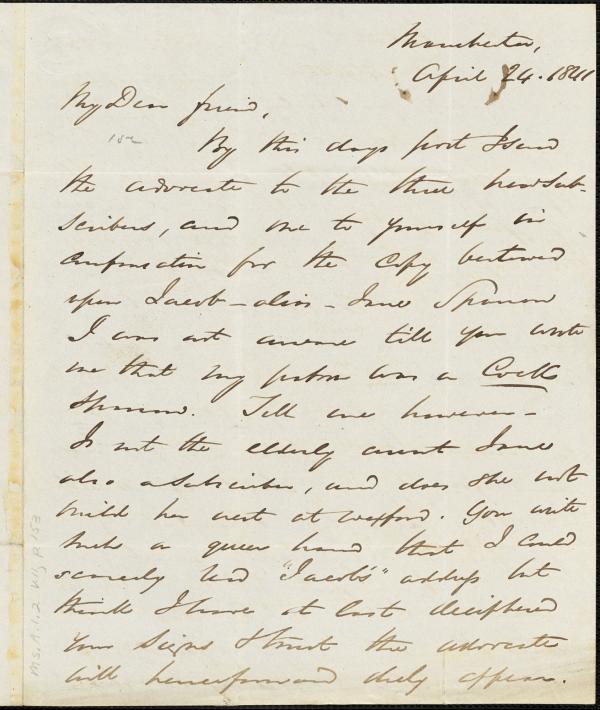 Manchester,
April 24. 1841
My Dear friend,
By this days post I send
the advocate to the three new sub-
scribers, and one to yourself in
compensation for the Copy bestowed
upon Jacob - alias - Jane Sparrow
I was not aware till you wrote
me that my patron was a Cock
Sparrow. Tell me however -
Is not the elderly aunt Jane
also a Subscriber, and does she not
build her nest at Wexford. You write
such a queer hand that I could
scarcely read "Jacob's" address but
think I have at last deciphered
your signs I trust the advocate
will henceforward duly appear.
Ms. A.1.2 V.11, p. 153